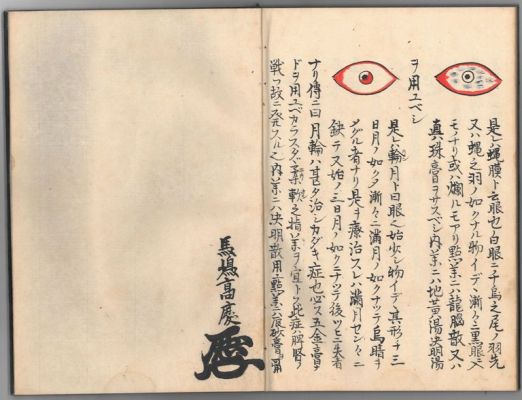 是レハ蝿膜ト云眼也白眼ニ千鳥之尾ノ羽先
又ハ蝿之羽ノ如クナル物イデヽ漸々ニ黒眼ニ入
モノナリ或ハ爛ルモアリ點薬ニハ龍脳散又ハ
真珠膏ヲサスベシ内薬ニハ地黄湯決明湯
ヲ用ユベシ
是レハ輪月ト曰眼之始少シ物イデヽ其形チ三
日月ノ如ク漸々ニ満月ノ如クナツテ烏睛ヲ
メグル者ナリ是ヲ療治スレハ満月
缺テ又始ノ三日月ノ如クニナツテ後ツヒニ失者
ナリ傳ニ曰月輪ハ甚ダ治シカダキ症也必ス五金膏ナ
ドヲ用ユベカラスタヾ柔軟之指薬ヲ宜トス此症ハ脾腎ヲ
戦フ故ニ発スル之内薬ニハ決明散用點薬ニハ辰砂膏可用
馬場高慶